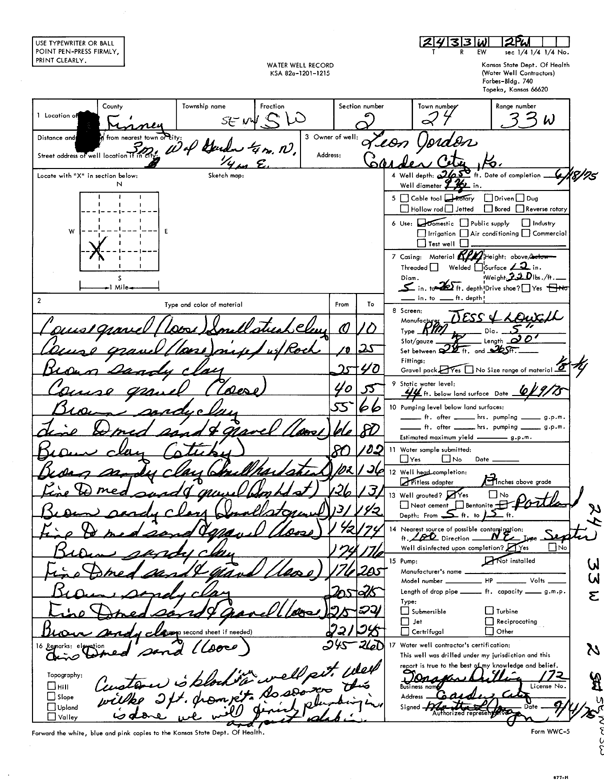 USE TYPEWRITER OR BALL
POINT PEN-PRESS FIRMLY,
PRINT CLEARLY.
WATER WELL RECORD
KSA 82a-1201-1215
2 4 3 3 W 2
T R EW sec 1/4 1/4 1/4 No.
Kansas State Dept. Of Health
(Water Well Contractors)
Forbes-Bldg. 740
Topeka, Kansas 66620
1 Location of County Finney Township name Fraction SE NW SW Section number 2 Town number 24 Range number 33 W
Distance and from nearest town or city: 3 m. W of Garden 1/4 m. N.
Street address of well location if in city: 1/4 m E.
3 Owner of well: Leon Jordon
Address: Garden City, Ks.
Locate with "X" in section below: Sketch map:
N
W E
X
S
1 Mile
4 Well depth: 265 ft. Date of completion 6/18/75
Well diameter in.
5 Cable tool Rotary Driven Dug
Hollow rod Jetted Bored Reverse rotary
6 Use: Domestic Public supply Industry
Irrigation Air conditioning Commercial
Test well
7 Casing: Material RPM Height: above/below
Threaded Welded Surface 12 in.
Diam. Weight lbs./ft.
5 in. to 265 ft. depth Drive shoe? Yes No
in. to ft. depth
2 Type and color of material From To
Course gravel (loose) small streak clay 0 10
Course gravel (loose) mixed w/ Rock 10 25
Brown sandy clay 25 40
Course gravel (loose) 40 55
Brown sandy clay 55 66
Fine to med sand & gravel (loose) 66 80
Brown clay (sticky) 80 102
Brown sandy clay (small hard streak) 102 126
Fine to med sand & gravel 126 131
Brown sandy clay (small st gravel) 131 142
Fine to med sand & gravel (loose) 142 174
Brown sandy clay 174 176
Fine to med sand & gravel (loose) 176 205
Brown sandy clay 205 215
Fine to med sand & gravel (loose) 215 221
Brown sandy clay (use second sheet if needed) 221 245
Fine to med sand (loose) 245 260
8 Screen:
Manufacturer Jess & Lowell
Type RPM Dia. 5"
Slot/gauze Length 20'
Set between ft. and 265 ft.
Fittings:
Gravel pack Yes No Size range of material
9 Static water level:
44 ft. below land surface Date 6/9/75
10 Pumping level below land surfaces:
ft. after hrs. pumping g.p.m.
ft. after hrs. pumping g.p.m.
Estimated maximum yield g.p.m.
11 Water sample submitted:
Yes No Date
12 Well head completion:
Pitless adapter 12 Inches above grade
13 Well grouted? Yes No
Neat cement Bentonite Portland
Depth: From 5 ft. to 15 ft.
14 Nearest source of possible contamination:
ft. 100 Direction NE Type Septic
Well disinfected upon completion? Yes No
15 Pump: Not installed
Manufacturer's name
Model number HP Volts
Length of drop pipe ft. capacity g.m.p.
Type:
Submersible Turbine
Jet Reciprocating
Certrifugal Other
16 Remarks: elevation
Topography:
Hill
Slope
Upland
Valley
Customer is
well pit. Well
will be 2 ft. from pit. As soon as this
is done we will finish plumbing in
17 Water well contractor's certification:
This well was drilled under my jurisdiction and this
report is true to the best of my knowledge and belief.
Drilling 172
Business name License No.
Address Garden City
Signed Date 9/4/75
Authorized representative
Forward the white, blue and pink copies to the Kansas State Dept. Of Health.
Form WWC-5
24 33W 2 SENWSW